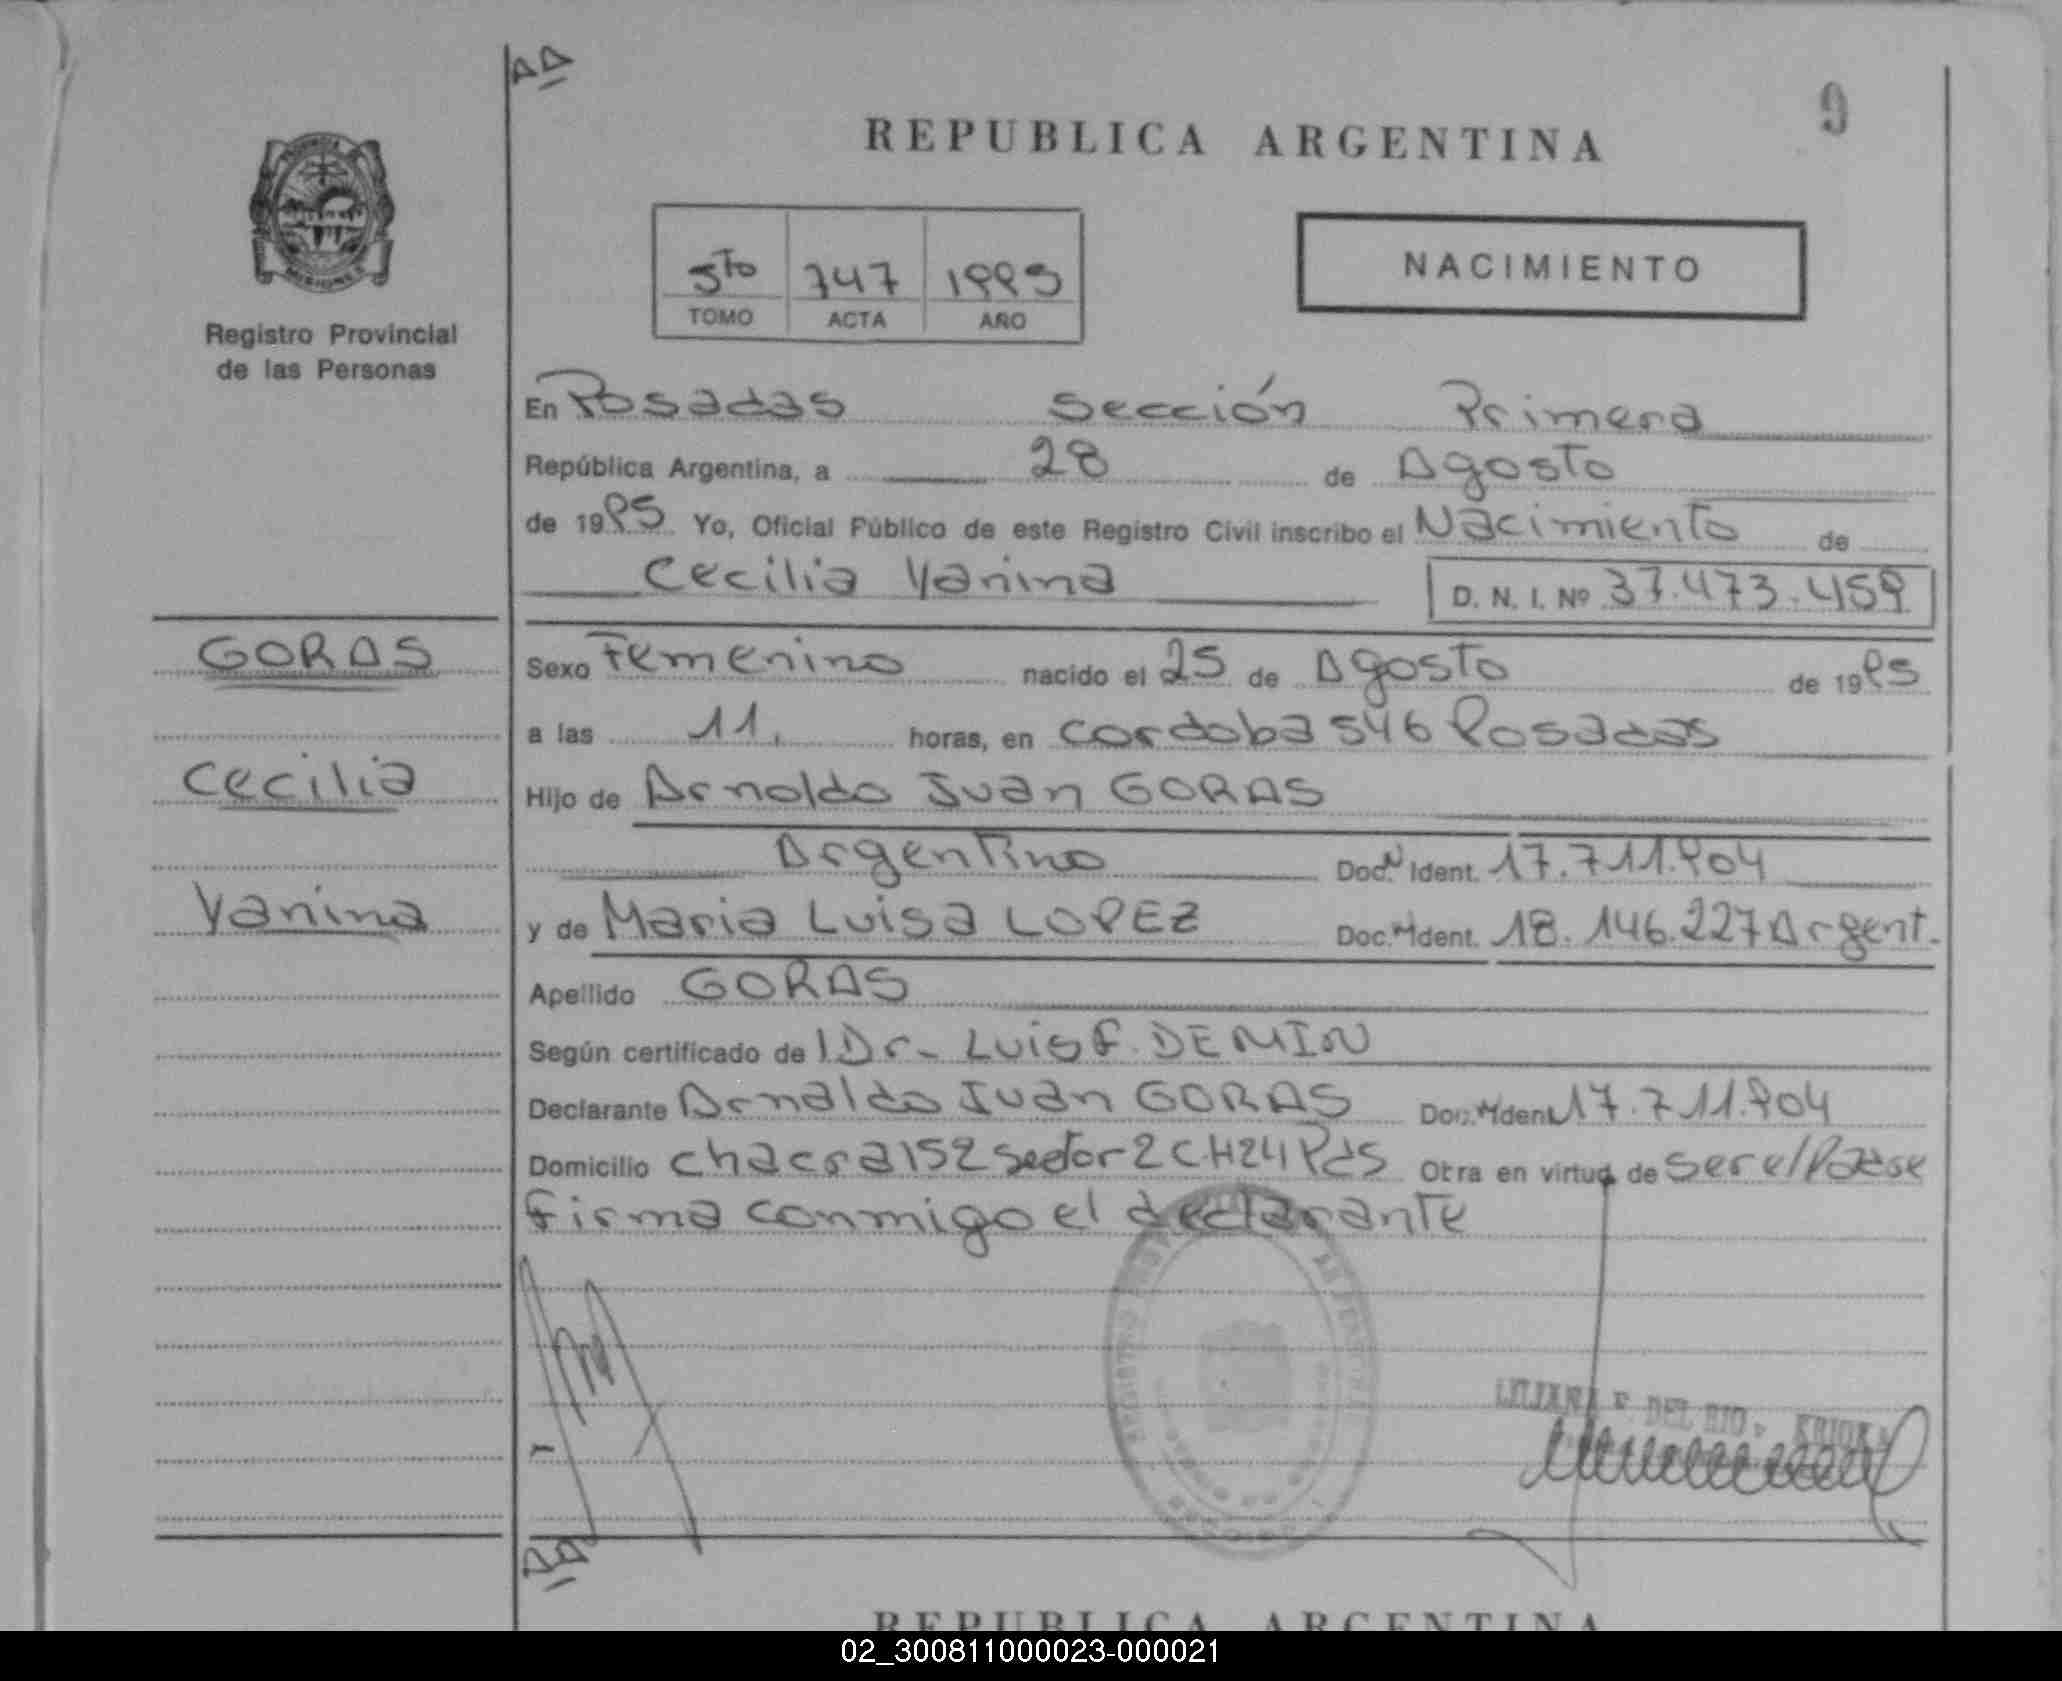 AA
9
REPUBLICA ARGENTINA
5to 747 1995
TOMO ACTA AÑO
NACIMIENTO
MISIONES
Registro Provincial
de las Personas
En Posadas Sección Primera
República Argentina, a 28 de Agosto
de 1995 Yo, Oficial Público de este Registro Civil inscribo el Nacimiento de
Cecilia Yanina D. N. I. Nº 37.473.459
GORAS
Sexo Femenino nacido el 25 de Agosto de 1995
a las 11. horas, en Cordoba 546 Posadas
Cecilia
Hijo de Arnoldo Juan GORAS
Argentino Doc. N Ident. 17.711.904
Yanina
y de Maria Luisa LOPEZ Doc. Ident. 18.146.227 Argent.
Apellido GORAS
Según certificado de Dr- Luis F. DEMIN
Declarante Arnaldo Juan GORAS Doc. Ident. 17.711.904
Domicilio chacra 152 sector 2 C.H24 Pds Otra en virtud de ser el Padre
Firma conmigo el declarante
LILIANA F. DEL RIO
AA
REPUBLICA ARGENTINA
02_300811000023-000021